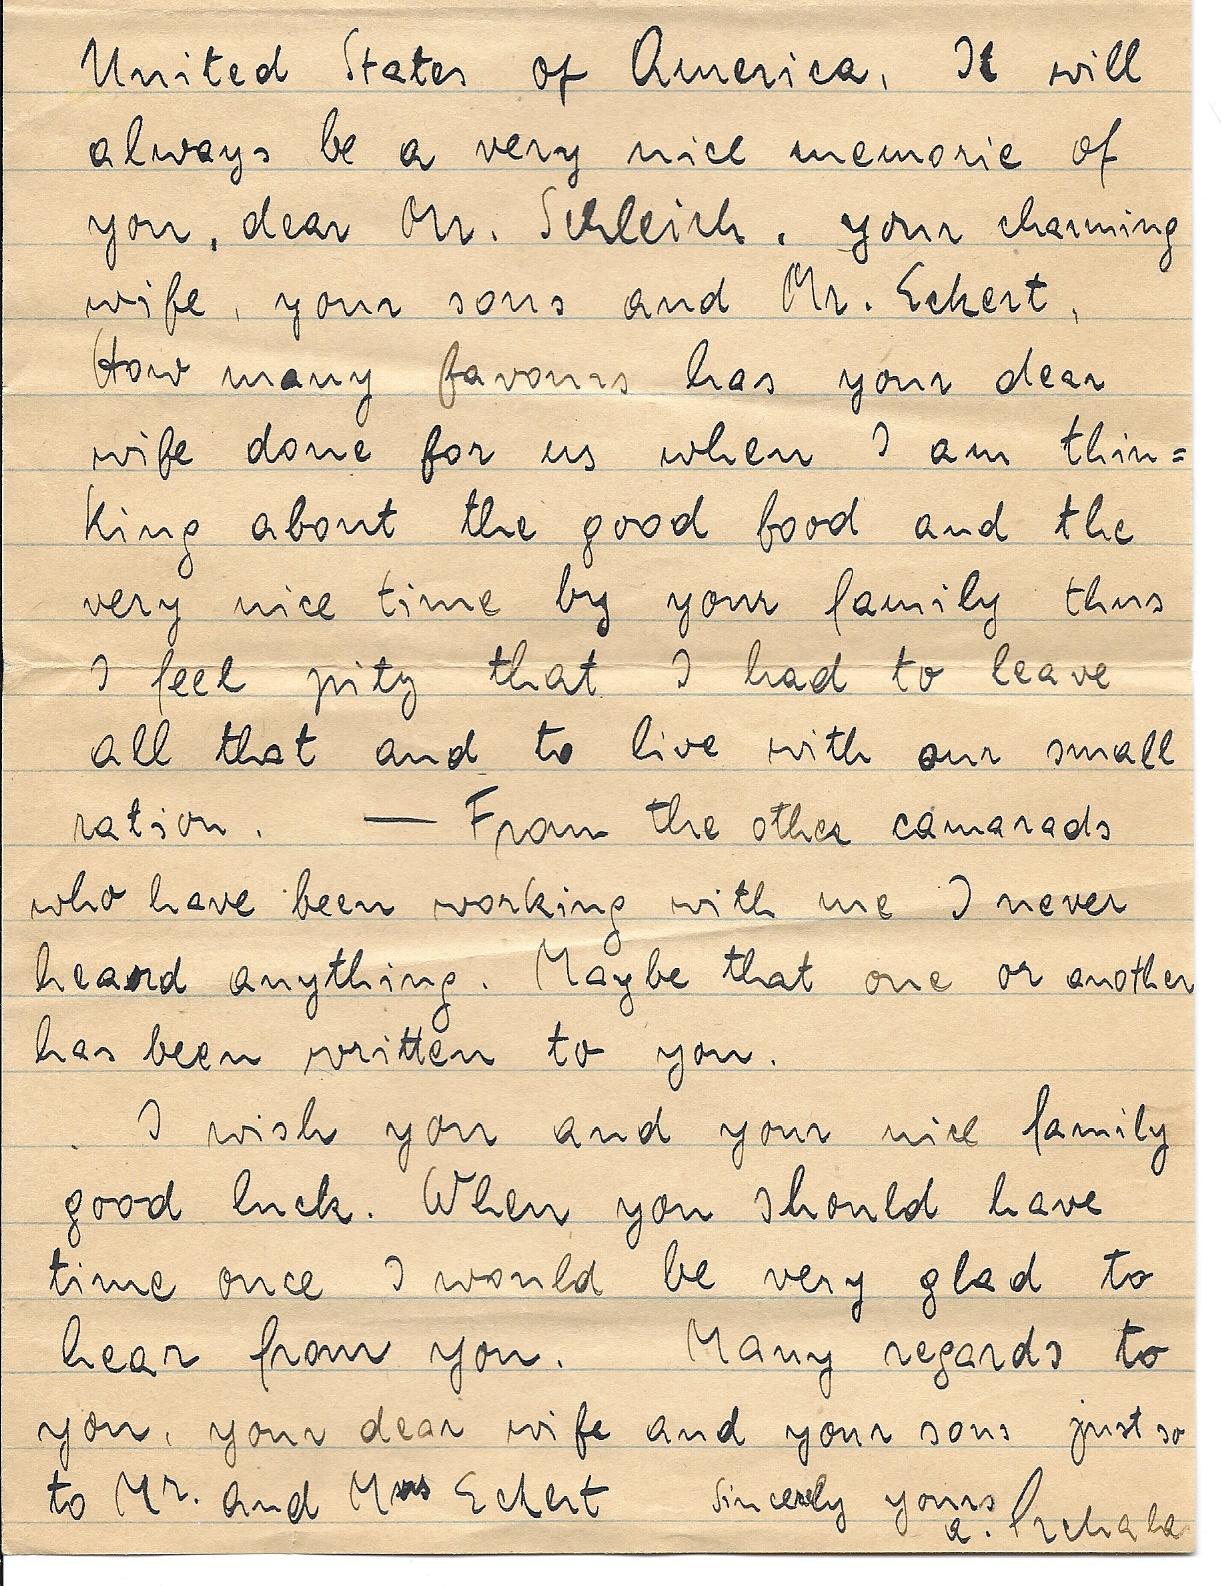 United States of America. It will
always be a very nice memorie of
you, dear Mr. Schleich, your charming
wife, your sons and Mr. Eckert,
How many favours has your dear
wife done for us when I am thin=
king about the good food and the
very nice time by your family thus
I feel pity that I had to leave
all that and to live with our small
ration. — From the other camarads
who have been working with me I never
heard anything. Maybe that one or another
has been written to you.
I wish you and your nice family
good luck. When you should have
time once I would be very glad to
hear from you. Many regards to
you, your dear wife and your sons just so
to Mr. and Mrs Eckert Sincerely yours
a.